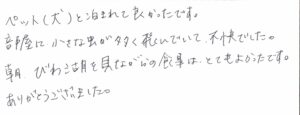 ペット(犬)と泊まれて良かったです。
部屋に小さな虫が多く飛んでいて、不快でした。
朝、びわこ湖を見ながらの食事は、とてもよかったです。
ありがとうございました。